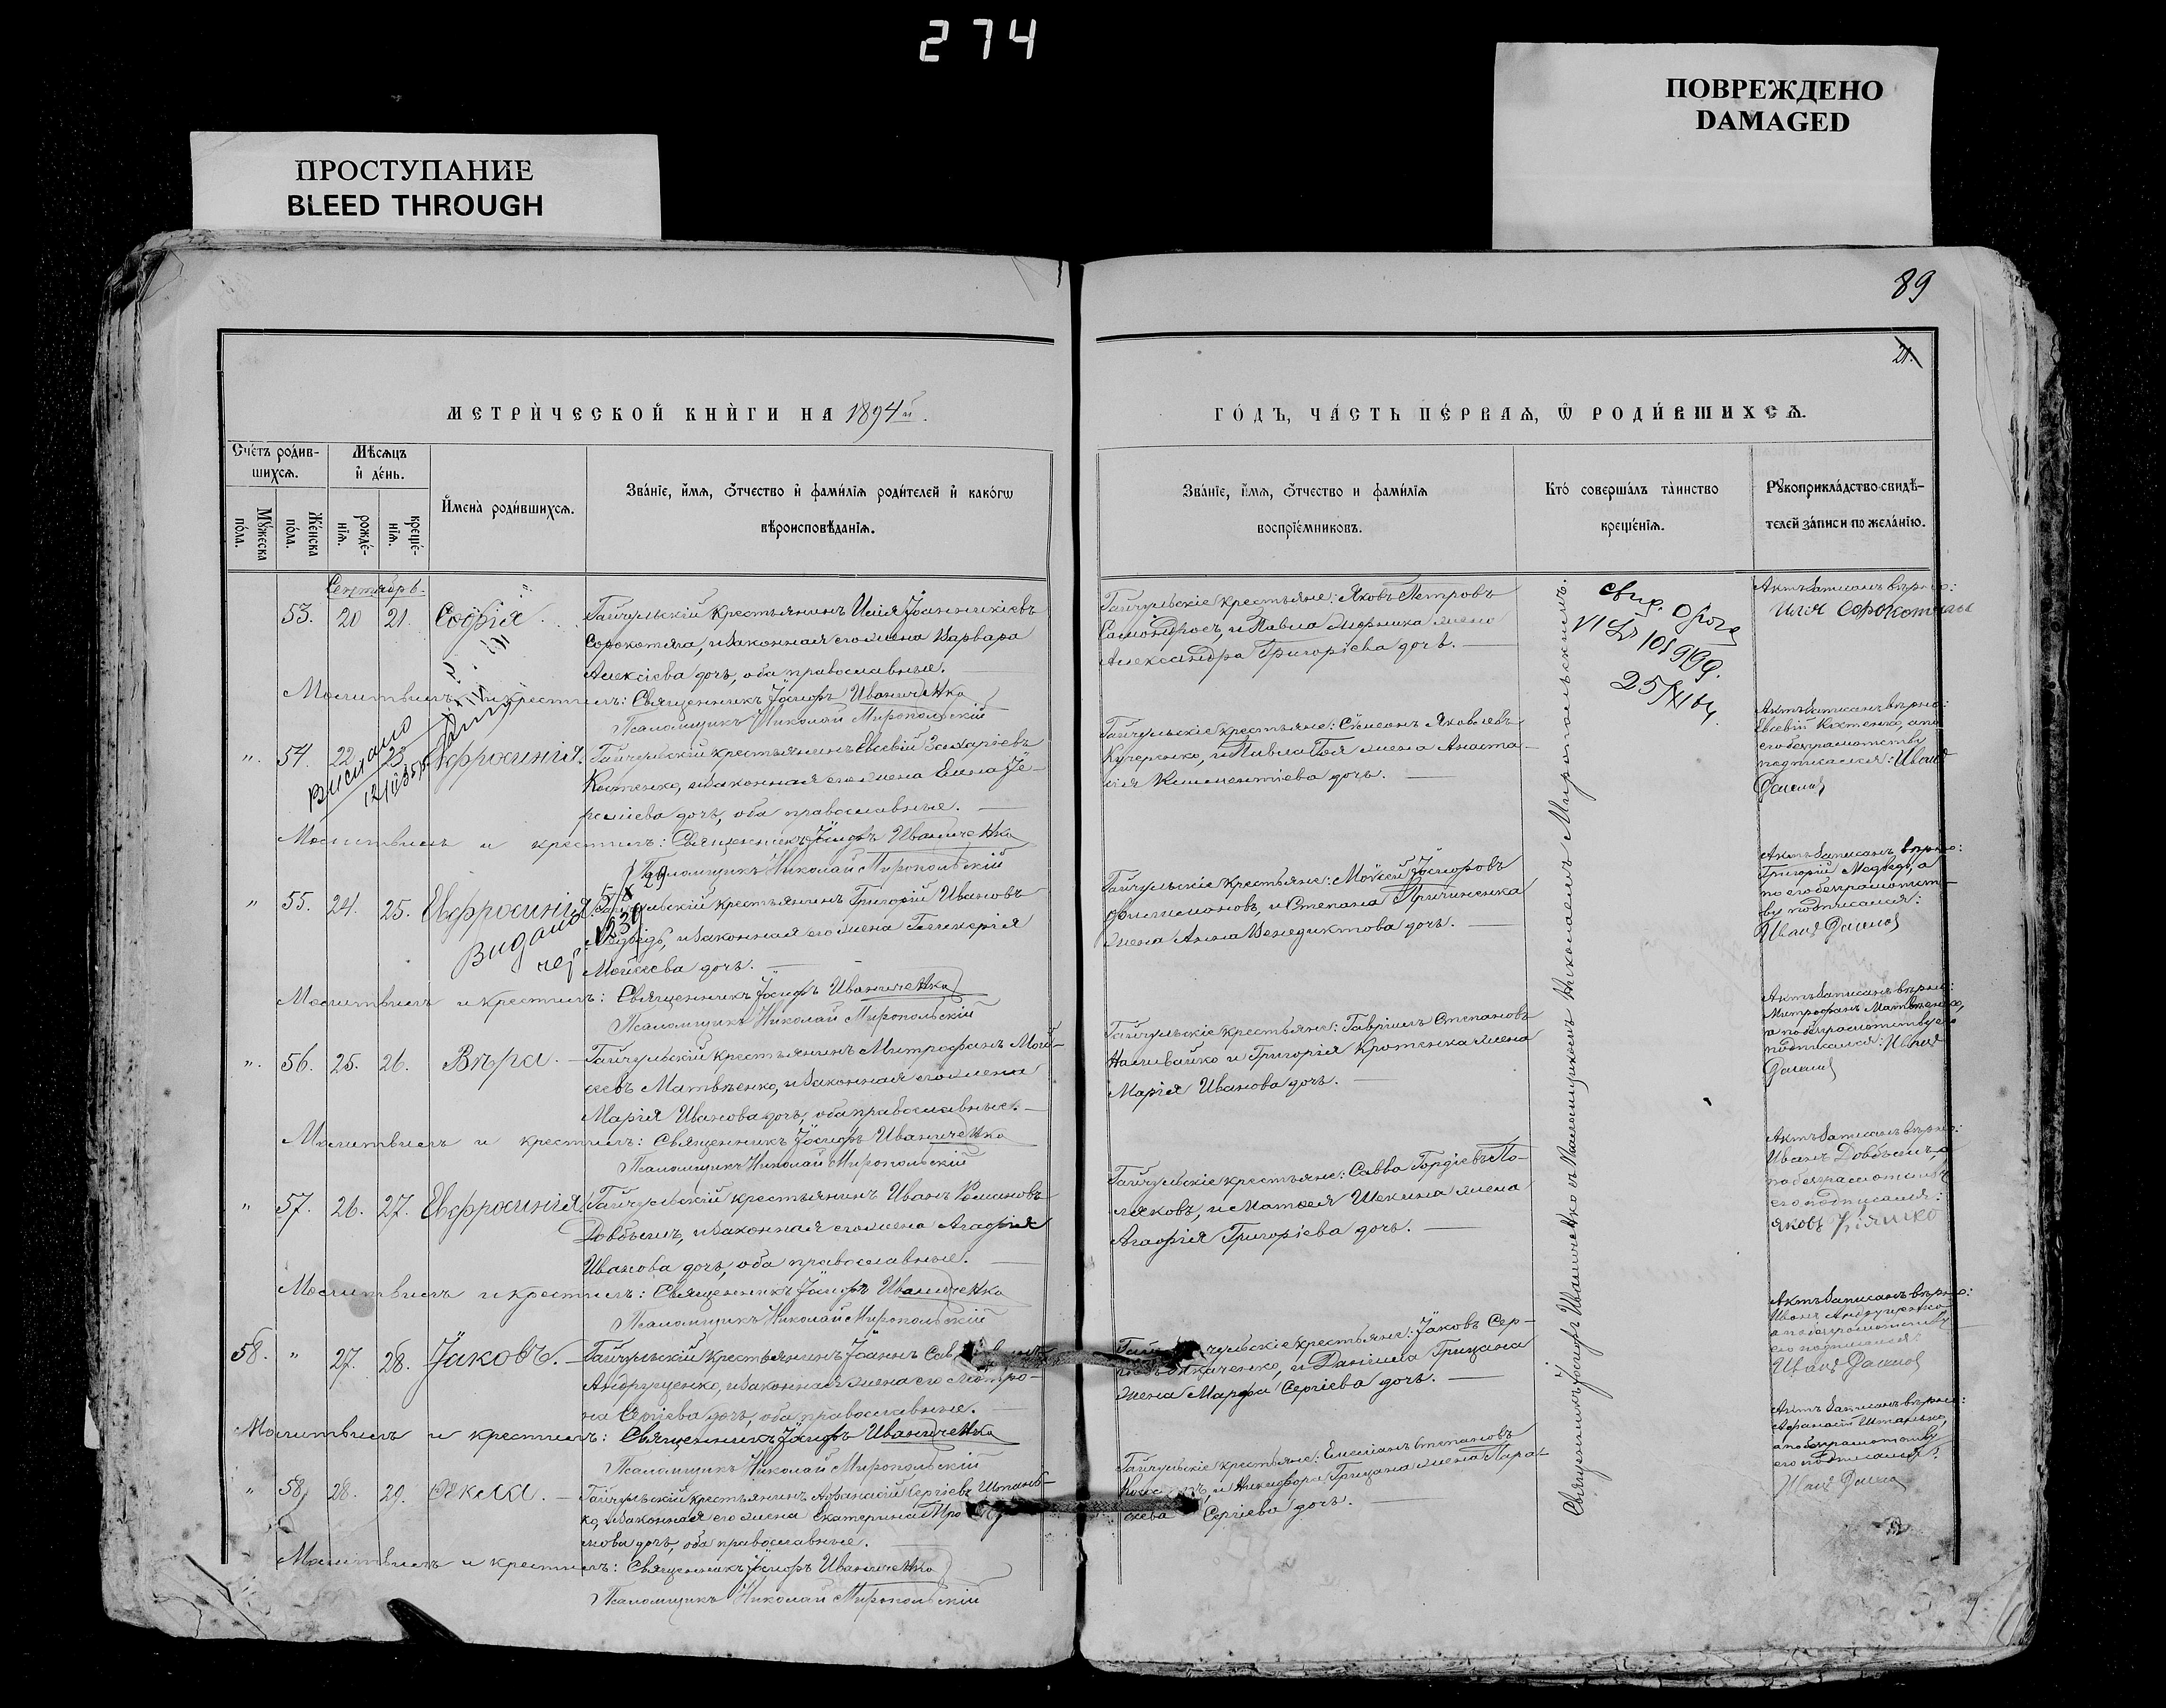 274
ПОВРЕЖДЕНО
DAMAGED
ПРОСТУПАНИЕ
BLEED THROUGH
89
21.
МЕТРИ́ЧЕСКОЙ КНИ́ГИ НА 1894й.
ГО́ДЪ, ЧА́СТЬ ПЕ́РВАѦ, Ѿ РОДИ́ВШИХСѦ.
Сче́тъ роди́в-
шихсѧ.
Мѣ́сѧцъ
и҆ де́нь.
Мꙋ́жеска
по́ла.
Же́нска
по́ла.
рожде́-
нїѧ.
креще́-
нїѧ.
И҆мена̀ роди́вшихсѧ.
Зва́нїе, и҆́мѧ, ѻ҆́тчество и҆ фами́лїѧ роди́телей и҆ како́гѡ
вѣроисповѣ́данїѧ.
Зва́нїе, и҆́мѧ, ѻ҆́тчество и фами́лїѧ
воспрїе́мниковъ.
Кто̀ соверша́лъ та́инство
креще́нїѧ.
Рꙋкоприкла́дство свидѣ́-
телей за́писи по жела́нїю.
Сентябрь.
53. 20 21. Софія.
Гайчульскій крестьянинъ Илія Іоанникіевъ
Сорокотяга, и законная его жена Варвара
Алексіева дочь, оба православные.
Молитвилъ и крестилъ: Священникъ Іосифъ Иваниченко
Псаломщикъ Николай Миропольскій
Гайчульскіе крестьяне: Яковъ Петровъ
и Павла жена
Александра Григорієва дочь.
25/XI 64.
Актъ записанъ вѣрно:
Илія Сорокотяга
" 54. 22 23 Евфросинія.
Гайчульскій крестьянинъ Евсевій Захаріевъ
Костенко, и законная его жена Елена Іе-
реміева дочь, оба православные.
Молитвилъ и крестилъ: Священникъ Іосифъ Иваниченко
Псаломщикъ Николай Миропольскій
Гайчульскіе крестьяне: Симеонъ Яковлевъ
Кучеренко, и Павла жена Анаста-
сія Климентіева дочь.
Актъ записанъ вѣрно:
Евсевій Костенко, а по
его безграмотству
подписался: Иванъ
" 55. 24. 25. Евфросинія.
Видано
Гайчульскій крестьянинъ Григорій Ивановъ
Медвѣдь, и законная его жена Гликерія
Мойсеева дочь.
Молитвилъ и крестилъ: Священникъ Іосифъ Иваниченко
Псаломщикъ Николай Миропольскій
Гайчульскіе крестьяне: Мойсей Іосифовъ
Филимоновъ, и Степана
жена Анна Венедиктова дочь.
Актъ записанъ вѣрно:
Григорій Медведь, а
по его безграмотст-
ву подписался:
Иванъ
" 56. 25. 26. Вѣра.
Гайчульскій крестьянинъ Митрофанъ Мой-
сеевъ Матвѣенко, и законная его жена
Марія Иванова дочь, оба православные.
Молитвилъ и крестилъ: Священникъ Іосифъ Иваниченко
Псаломщикъ Николай Миропольскій
Гайчульскіе крестьяне: Гавріилъ Степановъ
Наливайко и Григорія Кротенка жена
Марія Иванова дочь.
Актъ записанъ вѣрно:
Митрофанъ Матвѣенко,
а по безграмотству его
подписался: Иванъ
" 57. 26. 27. Евфросинія
Гайчульскій крестьянинъ Иванъ Романовъ
Довбышъ, и законная его жена Агафія
Иванова дочь, оба православные.
Молитвилъ и крестилъ: Священникъ Іосифъ Иваниченко
Псаломщикъ Николай Миропольскій
Гайчульскіе крестьяне: Савва Гордіевъ По-
ляковъ, и Матѳея Шекина жена
Агафія Григоріева дочь.
Актъ записанъ вѣрно:
Иванъ Довбышъ, а
по безграмотству
его подписался:
Яковъ
58. " 27. 28. Іаковъ.
Гайчульскій крестьянинъ Іоаннъ
Андрущенко, и законная жена его Матро-
на Сергіева дочь, оба православные.
Молитвилъ и крестилъ: Священникъ Іосифъ Иваниченко
Псаломщикъ Николай Миропольскій
Гайчульскіе крестьяне: Іаковъ Сер-
Ткаченко, и Даніила Грицана
жена Марфа Сергіева дочь.
Актъ записанъ вѣрно:
Иванъ Андрущенко
а по безграмотству
его подписался:
Иванъ
" 58 28. 29. Ѳекла.
Гайчульскій крестьянинъ Афанасій Сергіевъ Штань-
ко, и законная его жена Екатерина
дочь, оба православные.
Молитвилъ и крестилъ: Священникъ Іосифъ Иваниченко
Псаломщикъ Николай Миропольскій
Гайчульскіе крестьяне: Емеліанъ Степановъ
и Никифора Грицана жена Пара-
скева Сергіева дочь.
Актъ записанъ вѣрно:
Афанасій Штанько,
а по безграмотству
его подписался:
Иванъ
Священникъ Іосифъ Иваниченко съ Псаломщикомъ Николаемъ Миропольскимъ.